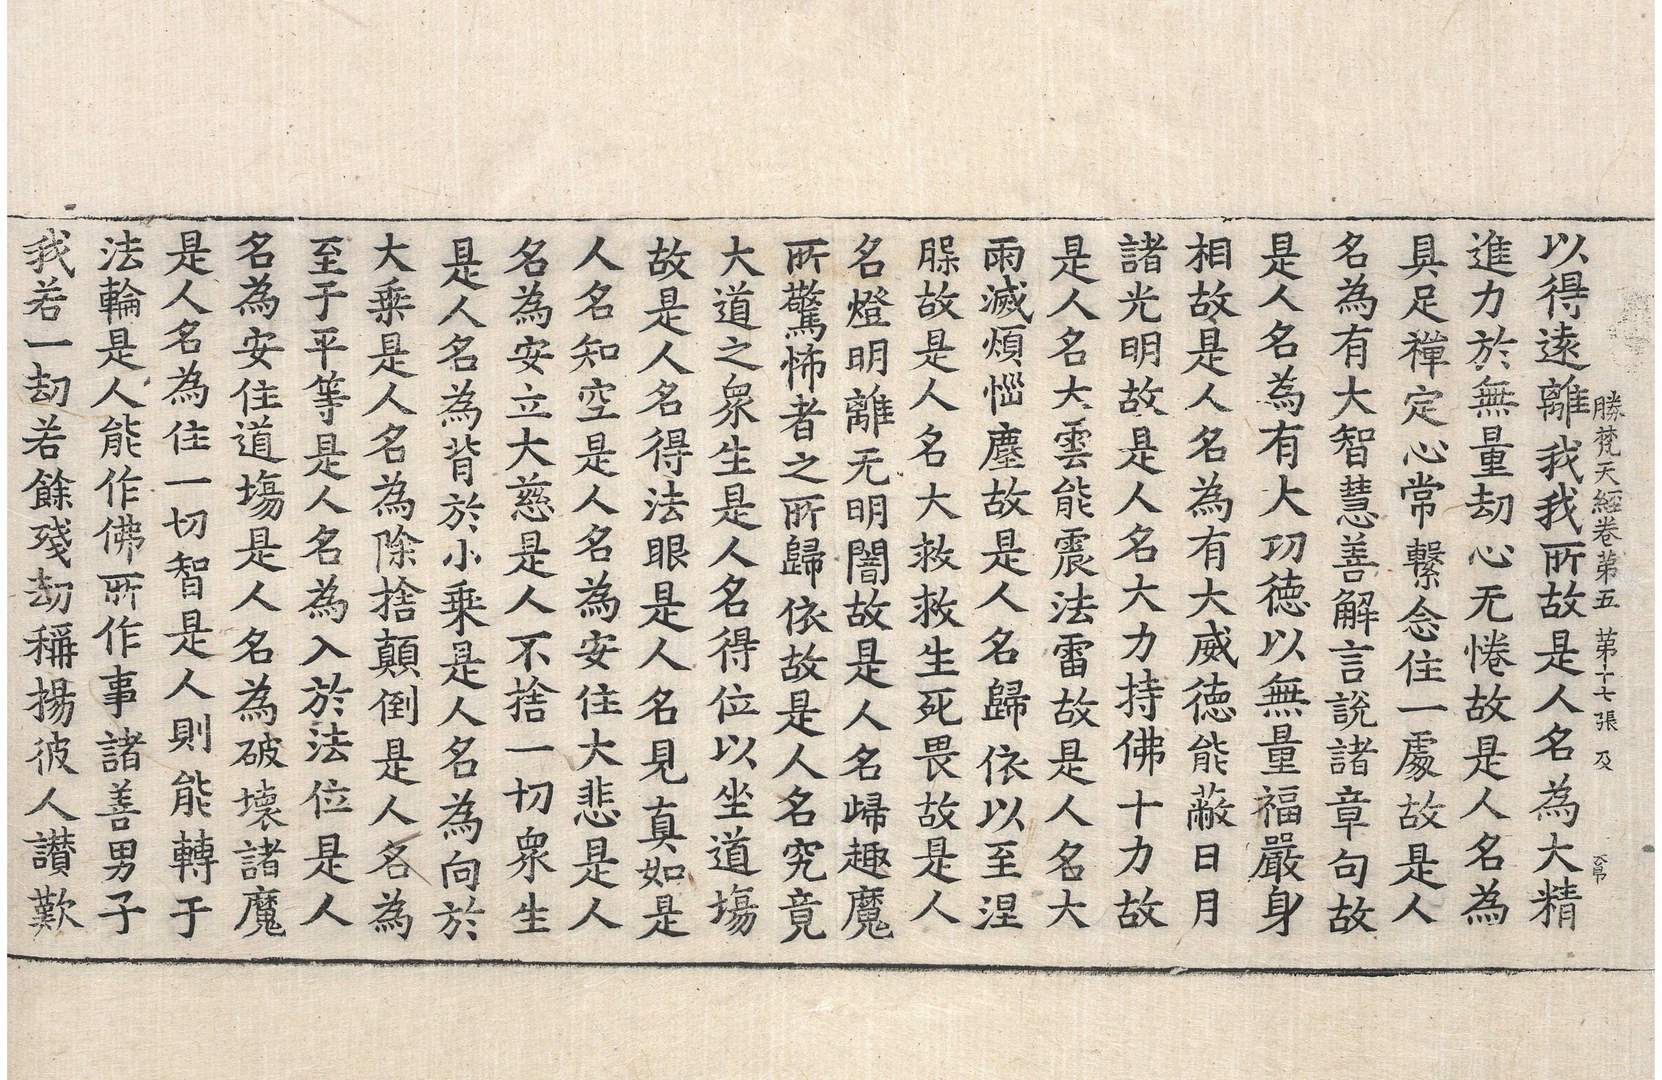 勝梵天經卷第五 第十七張 及
以得遠離我我所故是人名為大精
進力於無量劫心无惓故是人名為
具足禪定心常繫念住一處故是人
名為有大智慧善解言說諸章句故
是人名為有大功德以無量福嚴身
相故是人名為有大威德能蔽日月
諸光明故是人名大力持佛十力故
是人名大雲能震法雷故是人名大
雨滅煩惱塵故是人名歸依以至涅
故是人名大救救生死畏故是人
名燈明離无明闇故是人名歸趣魔
所驚怖者之所歸依故是人名究竟
大道之衆生是人名得位以坐道場
故是人名得法眼是人名見真如是
人名知空是人名為安住大悲是人
名為安立大慈是人不捨一切衆生
是人名為背於小乘是人名為向於
大乘是人名為除捨顛倒是人名為
至于平等是人名為入於法位是人
名為安住道場是人名為破壞諸魔
是人名為住一切智是人則能轉于
法輪是人能作佛所作事諸善男子
我若一劫若餘殘劫稱揚彼人讃歎